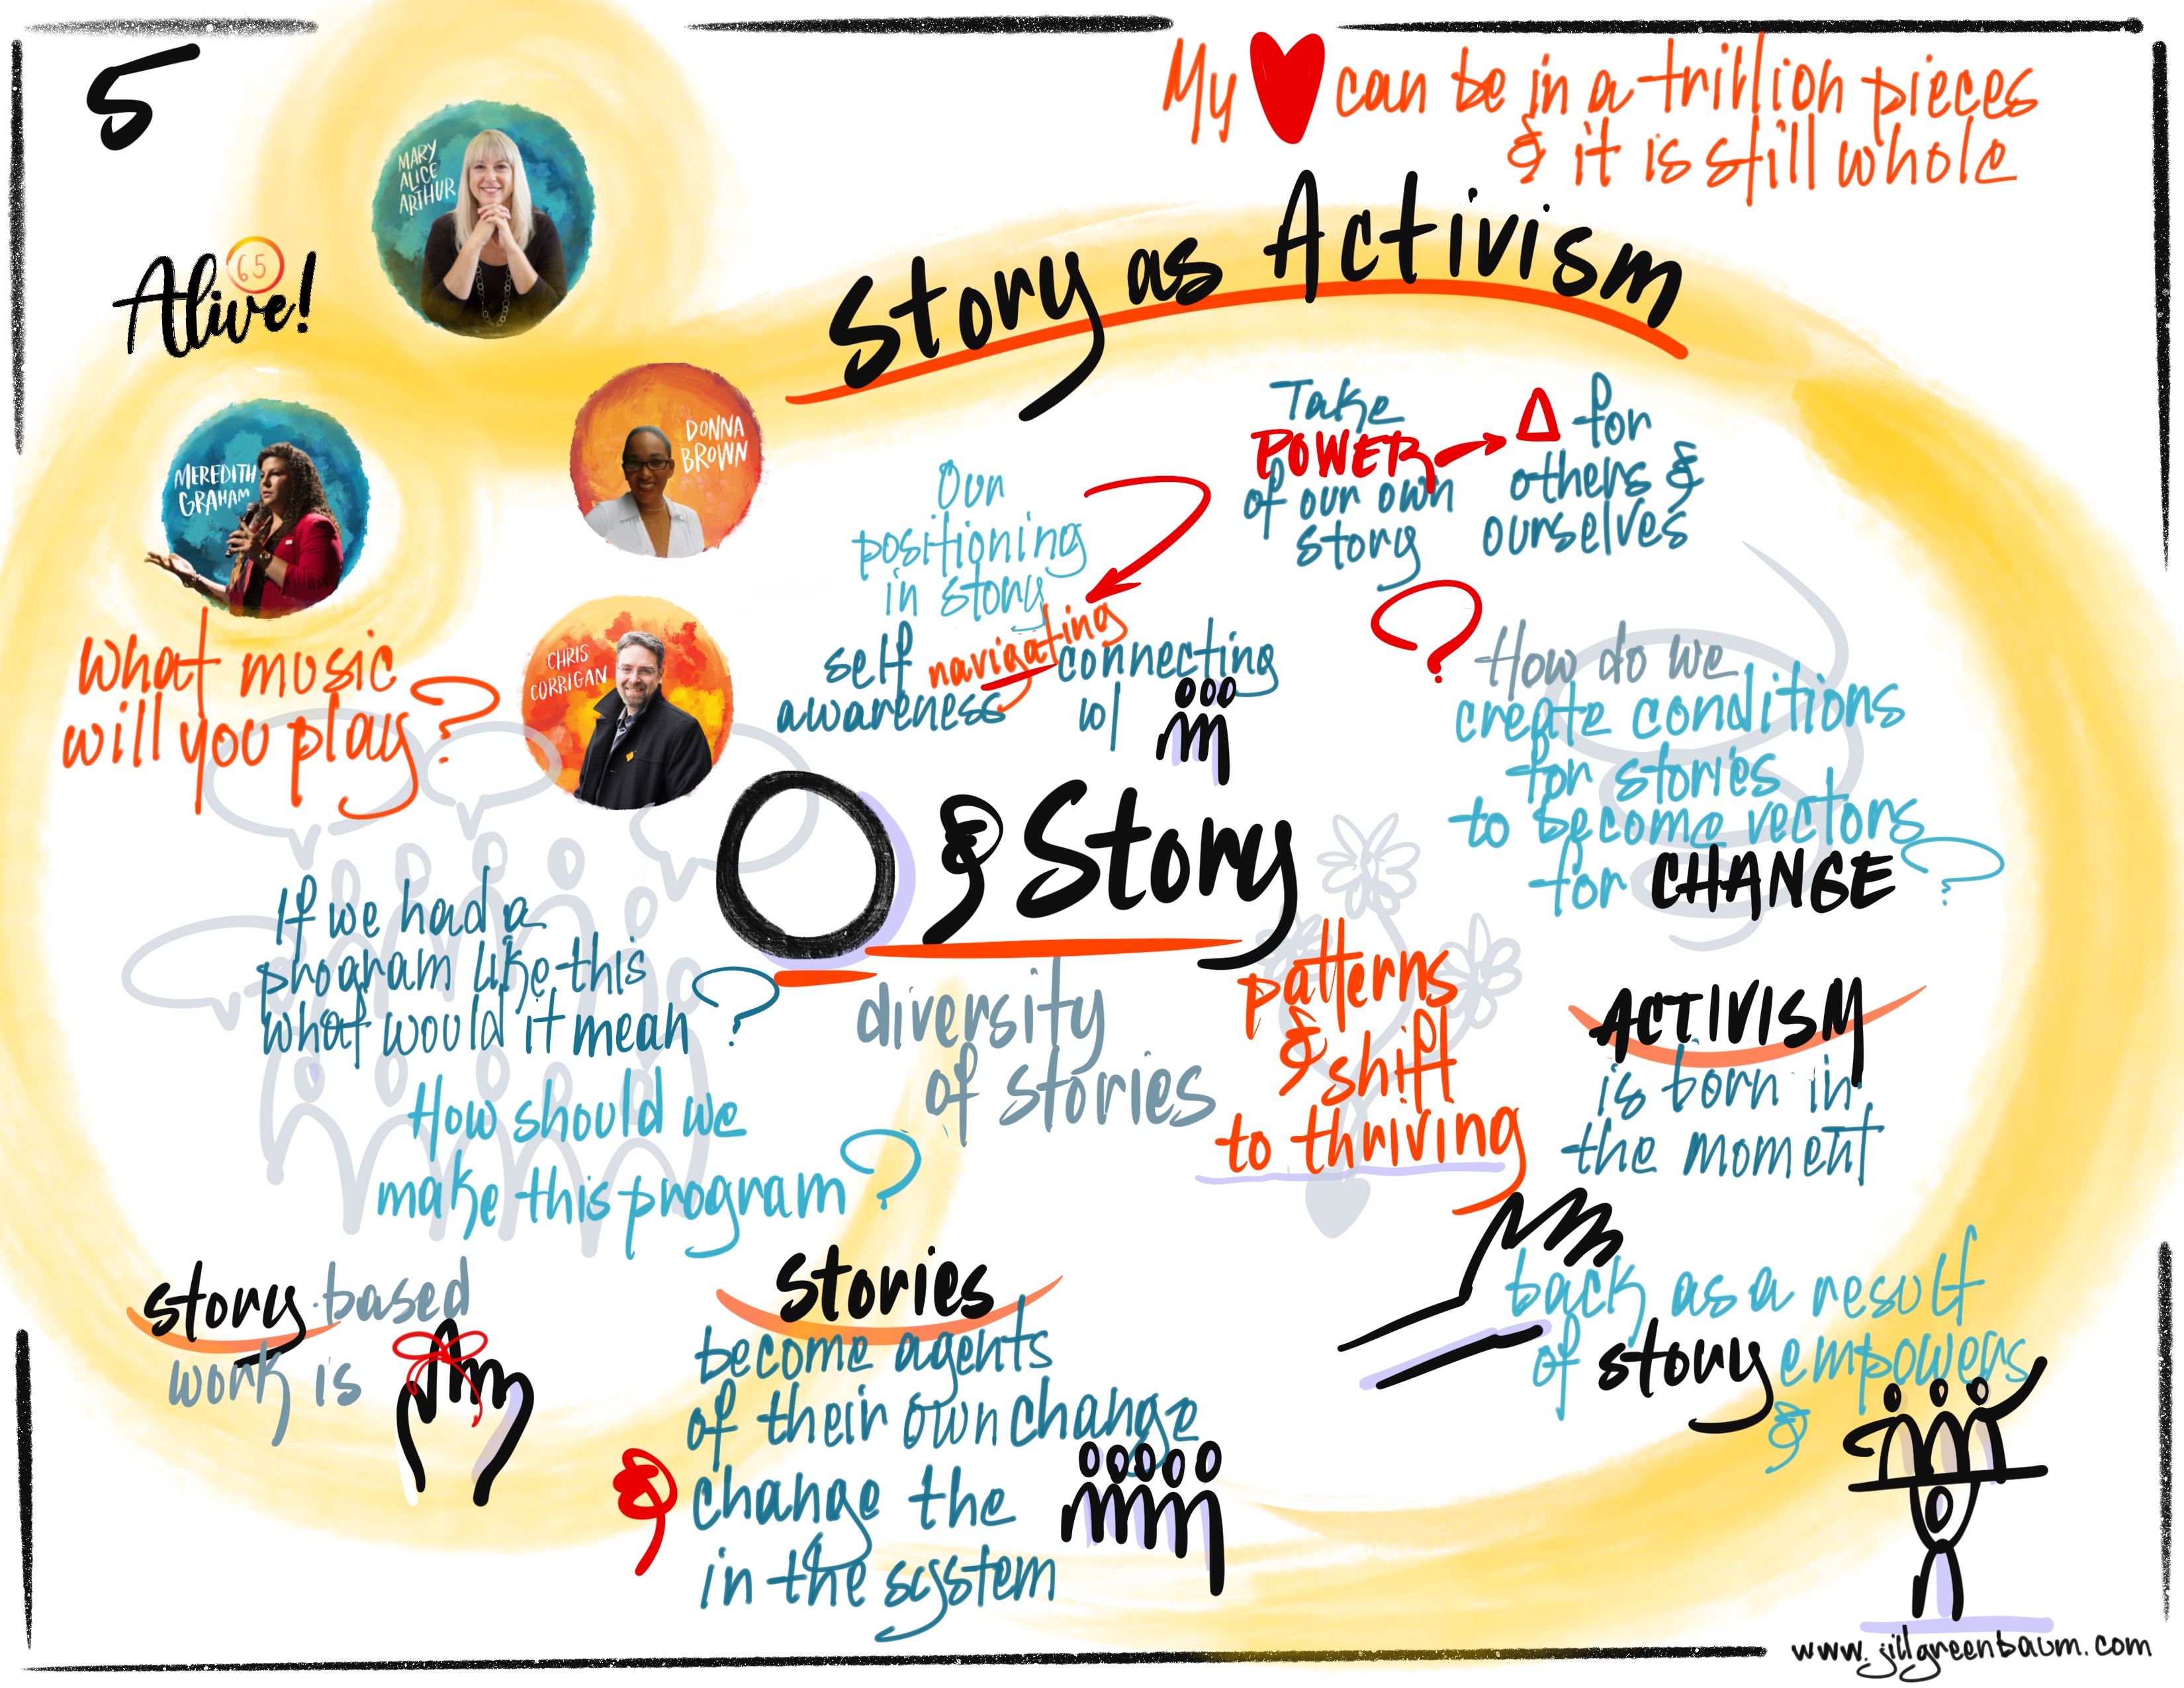 5
My can be in a trillion pieces
& it is still whole
MARY
ALICE
ARTHUR
65
Alive!
Story as Activism
MEREDITH
GRAHAM
DONNA
BROWN
CHRIS
CORRIGAN
Take
POWER
of our own
story
Δ for
others &
ourselves
Our
positioning
in story
self
awareness
navigating
connecting
w/
What music
will you play?
? How do we
create conditions
for stories
to become vectors
for CHANGE?
O & Story
If we had a
program like this
what would it mean?
How should we
make this program?
diversity
of stories
patterns
& shift
to thriving
ACTIVISM
is born in
the moment
story based
work is
stories
become agents
of their own change
& change the
in the system
back as a result
of story empowers
&
www.jillgreenbaum.com